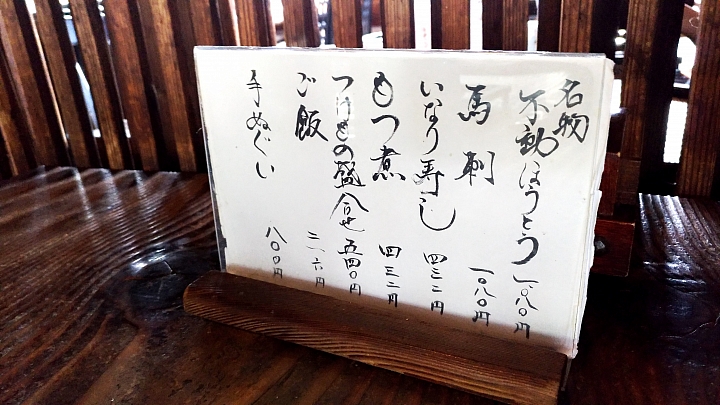 名物
不動ほうとう 一〇八〇円
馬刺 一〇八〇円
いなり寿し 四三二円
もつ煮 四三二円
つけもの盛合せ 五四〇円
ご飯 二一六円
手ぬぐい 八〇〇円